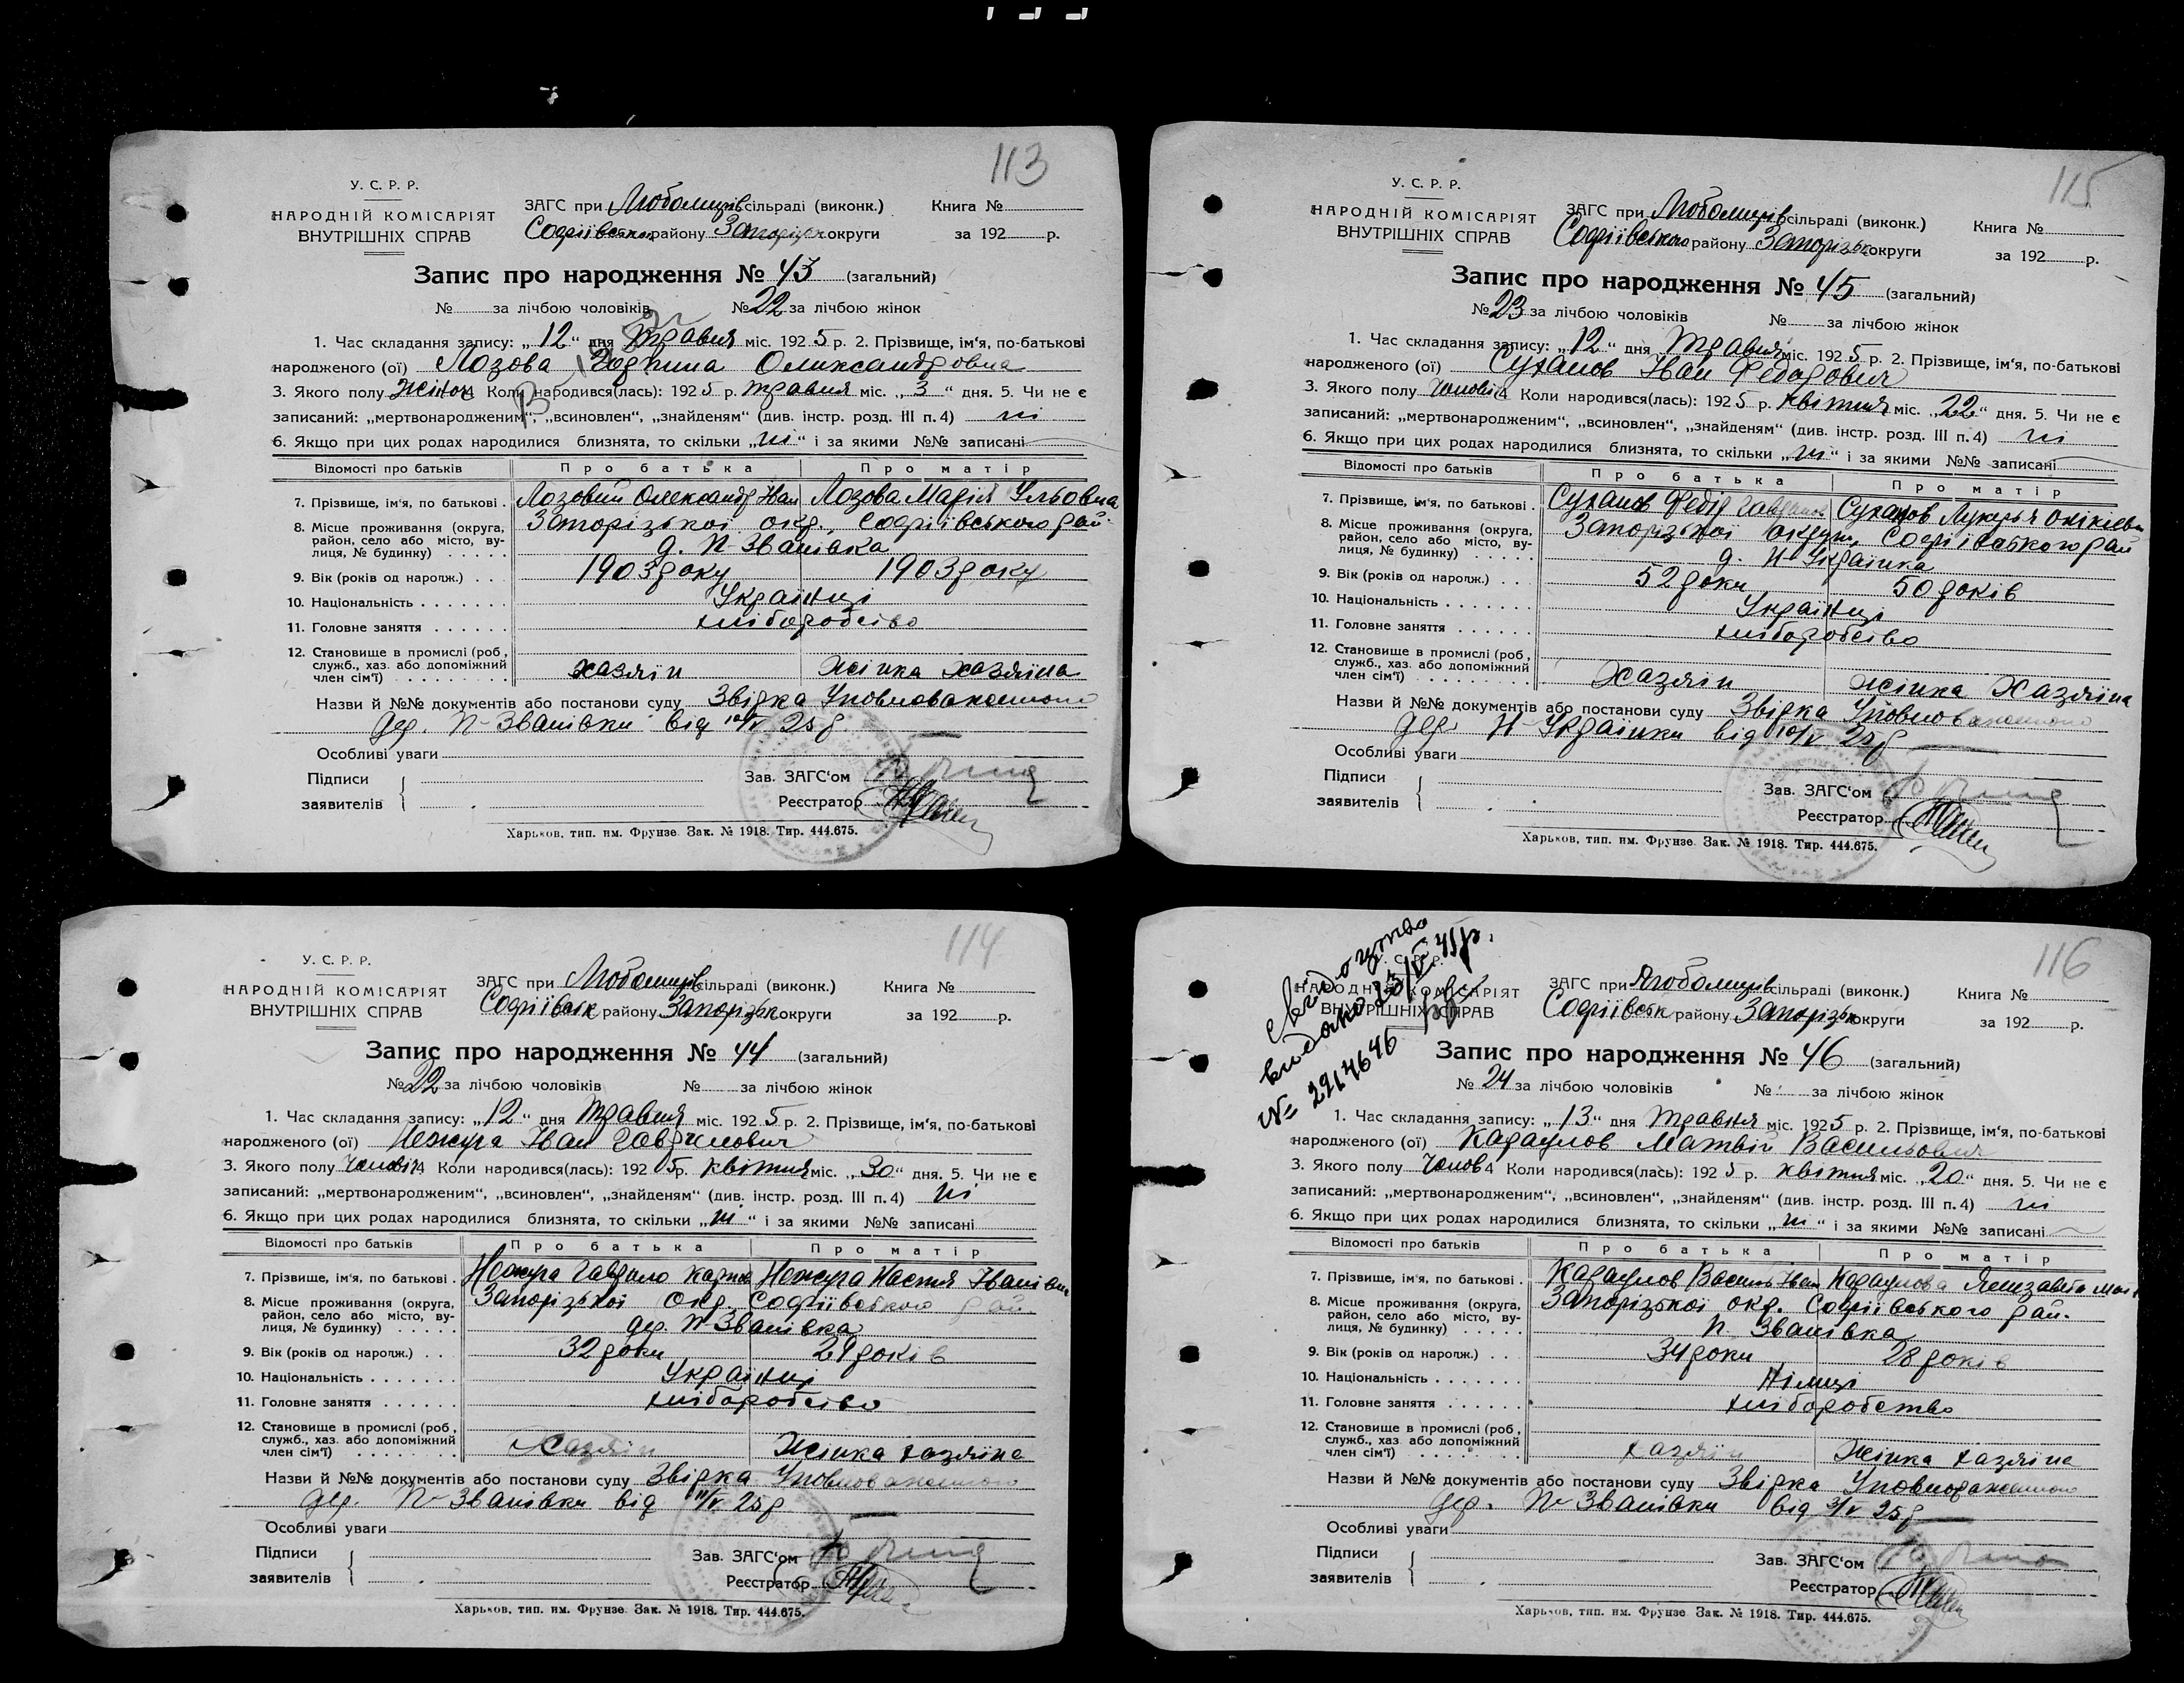 113
У. С. Р. Р.
НАРОДНІЙ КОМІСАРІЯТ
ВНУТРІШНІХ СПРАВ
ЗАГС при Любомирів сільраді (виконк.) Книга №
Софіївськ району Запорізьк округи за 192 р.
Запис про народження № 43 (загальний)
№ за лічбою чоловіків № 22 за лічбою жінок
1. Час складання запису: „12“ дня Травня міс. 1925 р. 2. Прізвище, ім‘я, по-батькові
народженого (ої) Лозова Олександровна
3. Якого полу Жіноч 4 Коли народився(лась): 1925 р. травня міс. „3“ дня. 5. Чи не є
записаний: „мертвонародженим“, „всиновлен“, „знайденям“ (див. інстр. розд. III п. 4) ні
6. Якщо при цих родах народилися близнята, то скільки „ні“ і за якими №№ записані
Відомості про батьків Про батька Про матір
7. Прізвище, ім‘я, по батькові . Лозовий Олександр Іван Лозова Марія Ульовна
8. Місце проживання (округа, район, село або місто, вулиця, № будинку) Запорізької окр. Софіївського рай.
д. П-Званівка
9. Вік (років од народж.) 1903 року 1903 року
10. Національність Українці
11. Головне заняття хліборобство
12. Становище в промислі (роб., служб., хаз. або допоміжний член сім‘ї) хазяїн жінка хазяїна
Назви й №№ документів або постанови суду Звірка Уповноваженного
дер. П-Званівки від 10/V 25 р
Особливі уваги
Підписи
заявителів
Зав. ЗАГС‘ом
Реєстратор
Харьков, тип. им. Фрунзе. Зак. № 1918. Тир. 444.675.
115
У. С. Р. Р.
НАРОДНІЙ КОМІСАРІЯТ
ВНУТРІШНІХ СПРАВ
ЗАГС при Любомирів сільраді (виконк.) Книга №
Софіївського району Запорізьк округи за 192 р.
Запис про народження № 45 (загальний)
№ 23 за лічбою чоловіків № за лічбою жінок
1. Час складання запису: „12“ дня Травня міс. 1925 р. 2. Прізвище, ім‘я, по-батькові
народженого (ої) Суханов Іван Федорович
3. Якого полу Чоловіч 4 Коли народився(лась): 1925 р. квітня міс. „22“ дня. 5. Чи не є
записаний: „мертвонародженим“, „всиновлен“, „знайденям“ (див. інстр. розд. III п. 4) ні
6. Якщо при цих родах народилися близнята, то скільки „ні“ і за якими №№ записані
Відомості про батьків Про батька Про матір
7. Прізвище, ім‘я, по батькові . Суханов Федір Суханов Лукерья
8. Місце проживання (округа, район, село або місто, вулиця, № будинку) Запорізької округи, Софіївського рай
д. Н-Українка
9. Вік (років од народж.) 52 роки 50 років
10. Національність Українці
11. Головне заняття хліборобство
12. Становище в промислі (роб., служб., хаз. або допоміжний член сім‘ї) Хазяїн жінка Хазяїна
Назви й №№ документів або постанови суду Звірка Уповноваженного
дер. Н-Українки від 10/V 25 р
Особливі уваги
Підписи
заявителів
Зав. ЗАГС‘ом
Реєстратор
Харьков, тип. им. Фрунзе. Зак. № 1918. Тир. 444.675.
114
У. С. Р. Р.
НАРОДНІЙ КОМІСАРІЯТ
ВНУТРІШНІХ СПРАВ
ЗАГС при Любомирів сільраді (виконк.) Книга №
Софіївськ району Запорізьк округи за 192 р.
Запис про народження № 44 (загальний)
№ 22 за лічбою чоловіків № за лічбою жінок
1. Час складання запису: „12“ дня Травня міс. 1925 р. 2. Прізвище, ім‘я, по-батькові
народженого (ої) Нежура Іван Гаврилович
3. Якого полу Чоловіч 4 Коли народився(лась): 1925 р. квітня міс. „30“ дня. 5. Чи не є
записаний: „мертвонародженим“, „всиновлен“, „знайденям“ (див. інстр. розд. III п. 4) ні
6. Якщо при цих родах народилися близнята, то скільки „ні“ і за якими №№ записані
Відомості про батьків Про батька Про матір
7. Прізвище, ім‘я, по батькові . Нежура Гаврило Нежура Настя Іванівна
8. Місце проживання (округа, район, село або місто, вулиця, № будинку) Запорізької окр. Софіївського рай
дер. П-Званівка
9. Вік (років од народж.) 32 роки 29 років
10. Національність Українці
11. Головне заняття хліборобство
12. Становище в промислі (роб., служб., хаз. або допоміжний член сім‘ї) Хазяїн Жінка хазяїна
Назви й №№ документів або постанови суду Звірка Уповноваженного
дер. П-Званівки від 11/V 25 р
Особливі уваги
Підписи
заявителів
Зав. ЗАГС‘ом
Реєстратор
Харьков, тип. им. Фрунзе. Зак. № 1918. Тир. 444.675.
116
видано 23/VI 45 р.
№ 2914646
У. С. Р. Р.
НАРОДНІЙ КОМІСАРІЯТ
ВНУТРІШНІХ СПРАВ
ЗАГС при Любомирів сільраді (виконк.) Книга №
Софіївськ району Запорізьк округи за 192 р.
Запис про народження № 46 (загальний)
№ 24 за лічбою чоловіків № за лічбою жінок
1. Час складання запису: „13“ дня Травня міс. 1925 р. 2. Прізвище, ім‘я, по-батькові
народженого (ої) Караулов Матвій Васильович
3. Якого полу Чолов 4 Коли народився(лась): 1925 р. квітня міс. „20“ дня. 5. Чи не є
записаний: „мертвонародженим“, „всиновлен“, „знайденям“ (див. інстр. розд. III п. 4) ні
6. Якщо при цих родах народилися близнята, то скільки „ні“ і за якими №№ записані
Відомості про батьків Про батька Про матір
7. Прізвище, ім‘я, по батькові . Караулов Василь Іван Караулова
8. Місце проживання (округа, район, село або місто, вулиця, № будинку) Запорізької окр. Софіївського рай.
П-Званівка
9. Вік (років од народж.) 34 роки 28 років
10. Національність Німці
11. Головне заняття хліборобство
12. Становище в промислі (роб., служб., хаз. або допоміжний член сім‘ї) хазяїн Жінка хазяїна
Назви й №№ документів або постанови суду Звірка Уповноваженного
дер. П-Званівки від 3/V 25 р
Особливі уваги
Підписи
заявителів
Зав. ЗАГС‘ом
Реєстратор
Харьков, тип. им. Фрунзе. Зак. № 1918. Тир. 444.675.